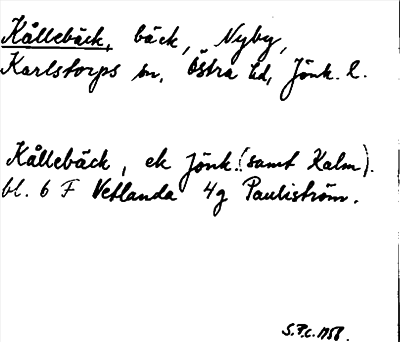 Kållebäck, bäck, Nyby,
Karlstorps sn, Östra hd, Jönk. l.
Kållebäck, ek Jönk. (samt Kalm).
bl. 6 F Vetlanda 4g Pauliström.
S.F.c. 1958.